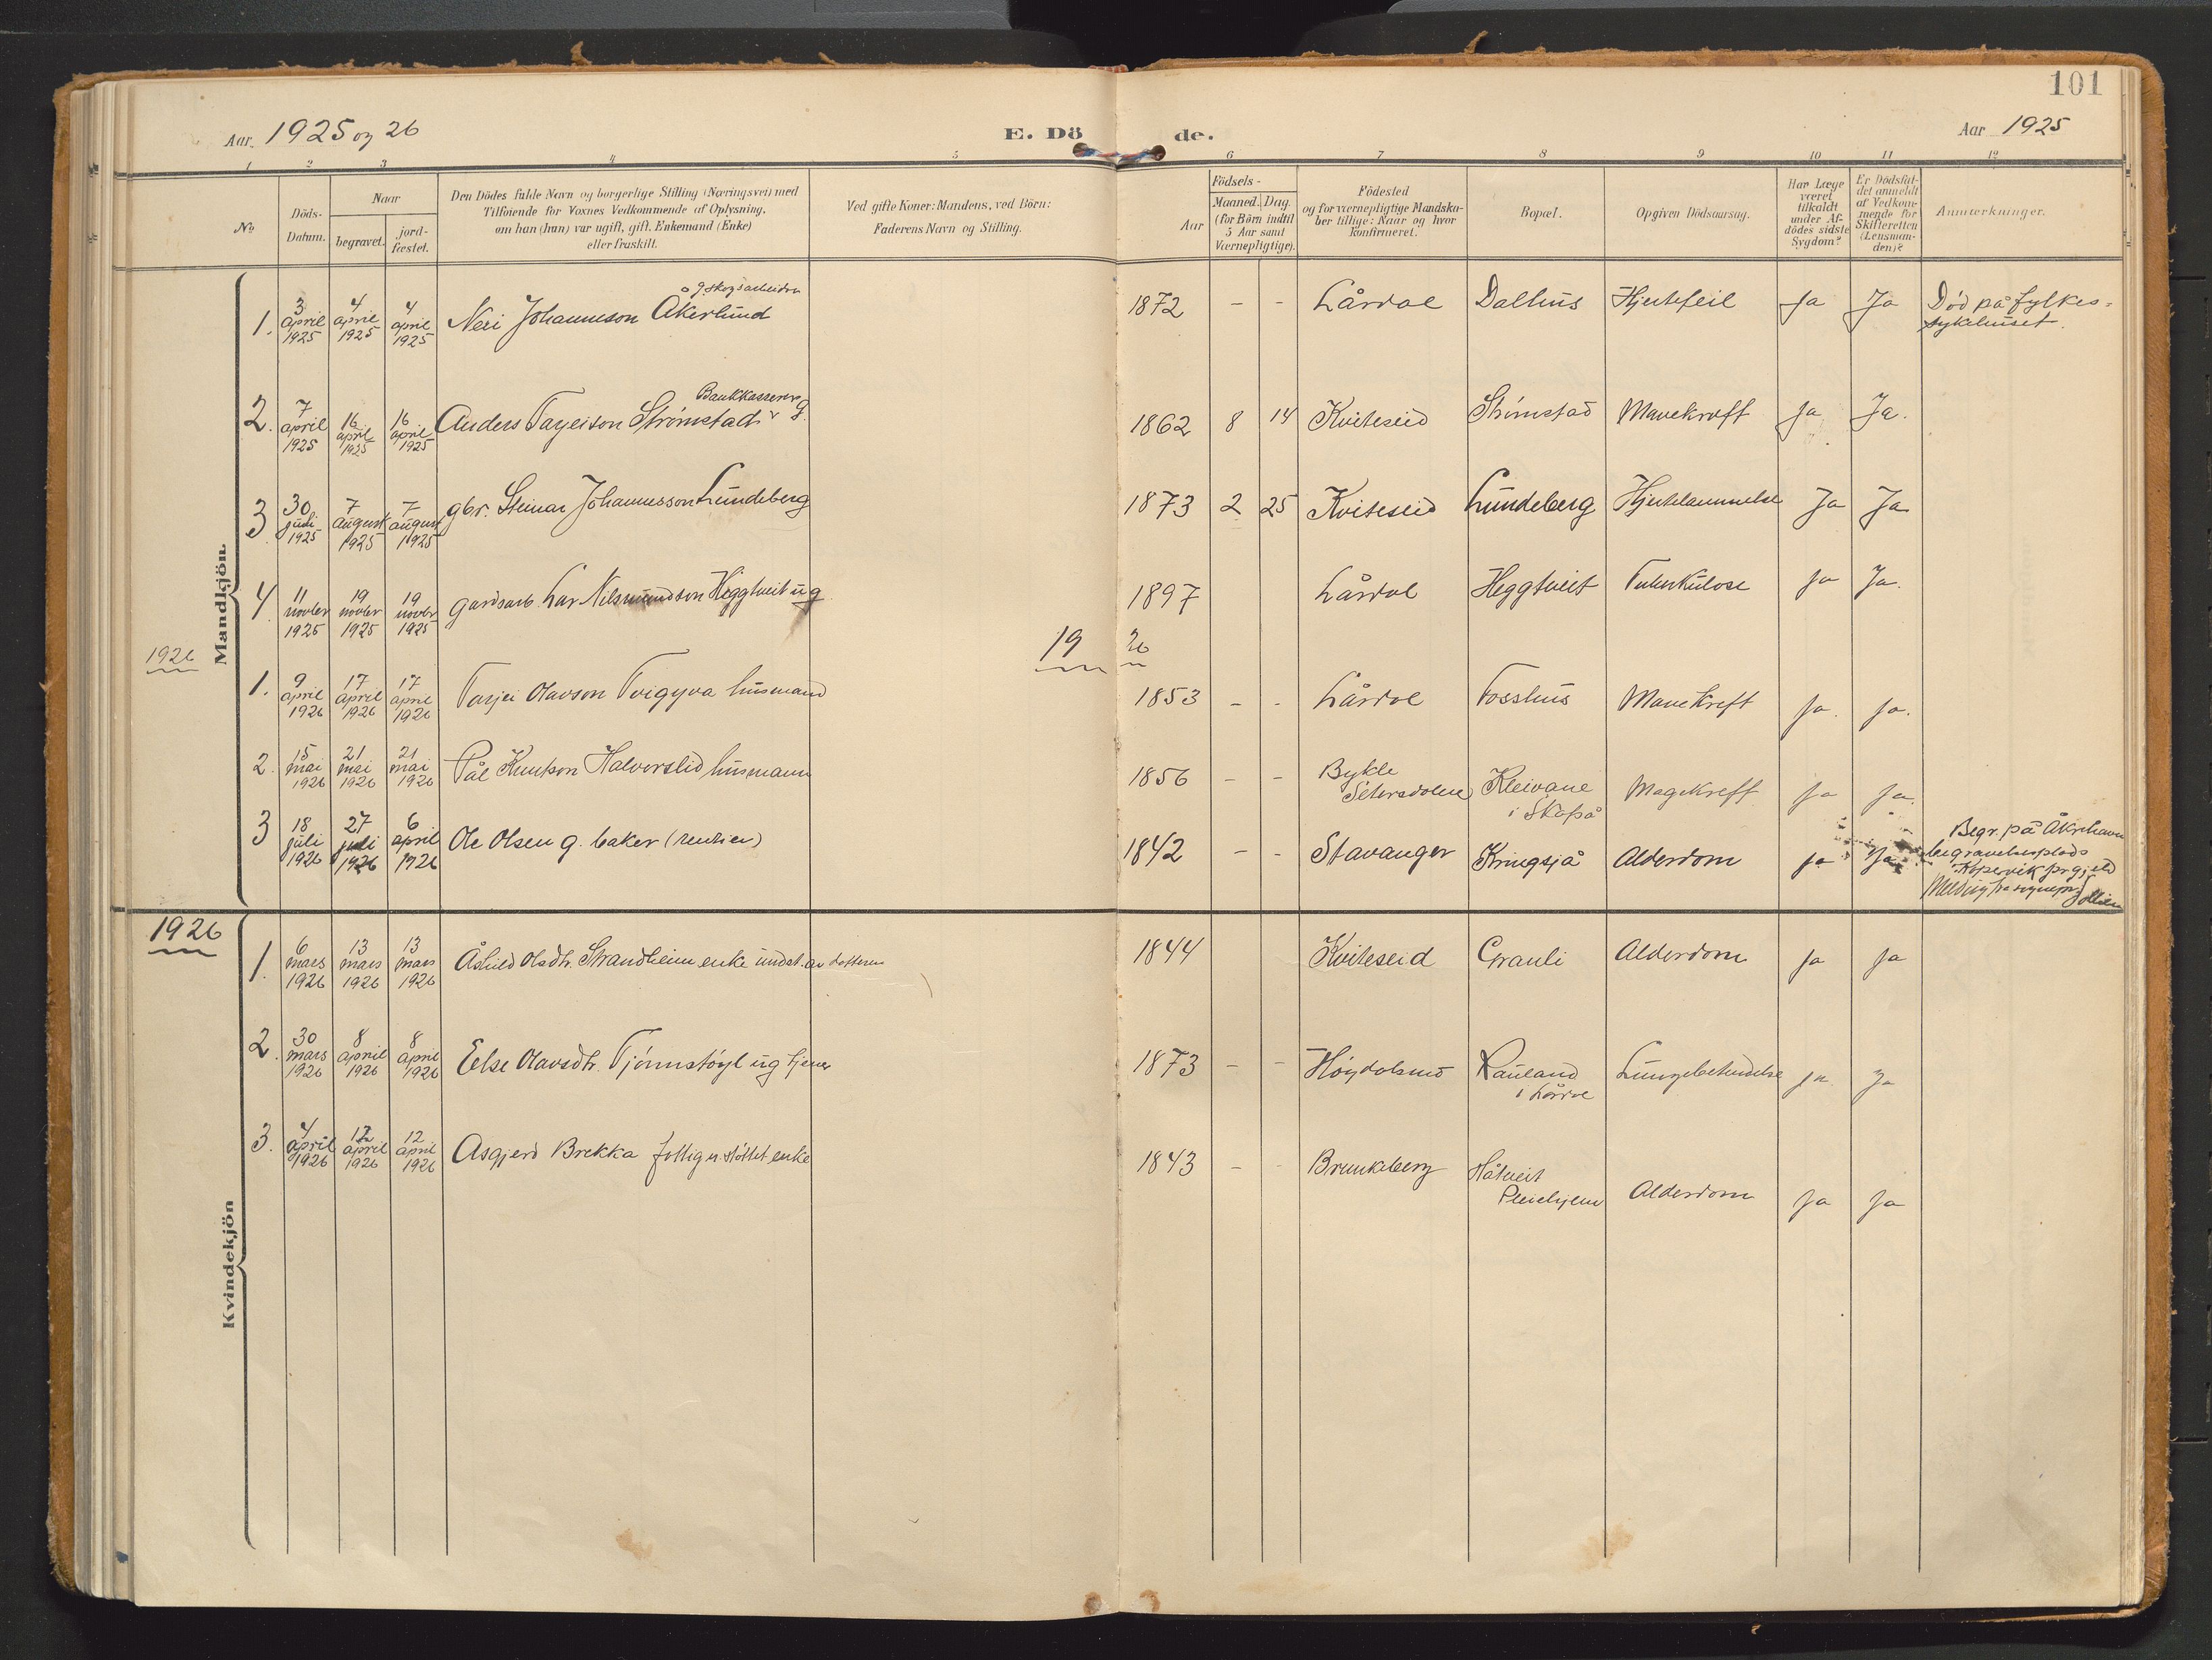 101
Aar 1925 og 26
E. Dö de.
Aar 1925
1 2 3 4 5 6 7 8 9 10 11 12
No
Döds-
Datum.
Naar
begravet.
jord-
fæstet.
Den Dödes fulde Navn og borgerlige Stilling (Næringsvei) med
Tilföiende for Voxnes Vedkommende af Oplysning,
om han (hun) var ugift, gift, Enkemand (Enke)
eller fraskilt.
Ved gifte Koner: Mandens, ved Börn:
Faderens Navn og Stilling.
Födsels-
Aar
Maaned. Dag.
(for Börn indtil
5 Aar samt
Værnepligtige).
Födested
og for værnepligtige Mandska-
ber tillige: Naar og hvor
konfirmeret.
Bopæl.
Opgiven Dödsaarsag.
Har Læge
været
tilkaldt
under Af-
dödes sidste
Sygdom?
Er Dödsfal-
det anmeldt
af Vedkom-
mende for
Skifteretten
(Lensman-
den)?
Anmærkninger.
Mandkjön.
1. 3 april 1925 4 april 1925 4 april 1925 Neri Johannson Åkerlund g. skogsarbeider 1872 - - Lårdal Dalhus Hjertefeil Ja Ja Død på fylkes-
sykehuset.
2. 7 april 1925 16 april 1925 16 april 1925 Anders Tarjeison Strømstad Bankkasserer g. 1862 8 14 Kviteseid Strømstad Mavekræft Ja Ja.
3 30 juli 1925 7 august 1925 7 august 1925 gbr. Steinar Johannesson Lundeberg 1873 2 25 Kviteseid Lundeberg Hjertelammelse Ja Ja
4. 11 novbr 1925 19 novbr 1925 19 novbr 1925 gardsarb. Lar Nilsmundson Heggtveit ug 1897 Lårdal Heggtveit Tuberkulose Ja Ja.
1926
19 26
1. 9 april 1926 17 april 1926 17 april 1926 Tarjei Olavson Tvigyva husmand 1853 - - Lårdal Fosshus Mavekreft Ja. Ja.
2. 15 mai 1926 21 mai 1926 21 mai 1926 Pål Knutson Halvorslid husmann 1856 - - Bykle
Setersdalen Kleivane
i Skafså Magekreft Ja Ja.
3 18 juli 1926 27 juli 1926 6 april 1926 Ole Olsen g. baker (rentier) 1842 - - Stavanger Kringsjå Alderdom Ja Ja Begr. på Åkrehavn
begravelsesplads
Kopervik prgjeld
Melding fra sogneprest
1926
Kvindekjön
1. 6 mars 1926 13 mars 1926 13 mars 1926 Åshild Olsdtr. Strandheim enke underst. av datteren 1844 Kviteseid Grauli Alderdom Ja Ja
2. 30 mars 1926 8 april 1926 8 april 1926 Eelse Olavsdtr. Tjønnstøyl ug tjener 1873 - - Høydalsmo Rauland
i Lårdal Lungebetendelse Ja Ja
3. 4 april 1926 12 april 1926 12 april 1926 Asgjerd Brekka fattigunstøttet enke 1843 - - Brunkeberg Håtveit
Pleiehjem Alderdom Ja Ja